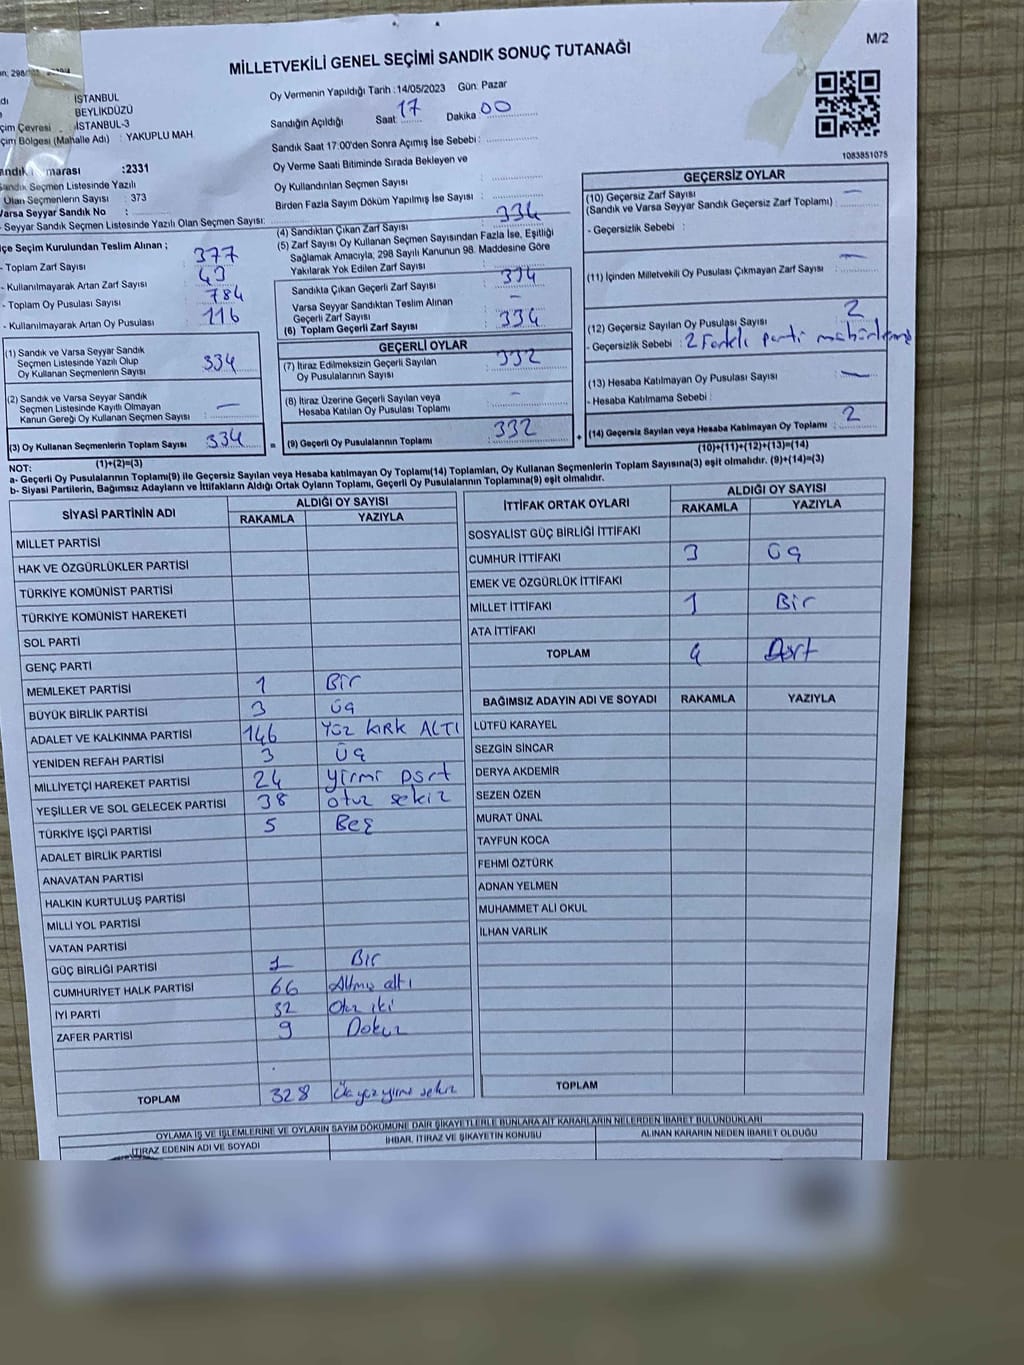 M/2
MİLLETVEKİLİ GENEL SEÇİMİ SANDIK SONUÇ TUTANAĞI
İSTANBUL
BEYLİKDÜZÜ
çim Çevresi : İSTANBUL-3
çim Bölgesi (Mahalle Adı) : YAKUPLU MAH.
:2331
Sandık Seçmen Listesinde Yazılı
Olan Seçmenlerin Sayısı : 373
Varsa Seyyar Sandık No :
- Seyyar Sandık Seçmen Listesinde Yazılı Olan Seçmen Sayısı:
çe Seçim Kurulundan Teslim Alınan ;
- Toplam Zarf Sayısı 377
- Kullanılmayarak Artan Zarf Sayısı 43
- Toplam Oy Pusulası Sayısı 784
- Kullanılmayarak Artan Oy Pusulası 116
(1) Sandık ve Varsa Seyyar Sandık
Seçmen Listesinde Yazılı Olup
Oy Kullanan Seçmenlerin Sayısı 334
(2) Sandık ve Varsa Seyyar Sandık
Seçmen Listesinde Kayıtlı Olmayan
Kanun Gereği Oy Kullanan Seçmen Sayısı -
(3) Oy Kullanan Seçmenlerin Toplam Sayısı 334
(1)+(2)=(3)
Oy Vermenin Yapıldığı Tarih :14/05/2023 Gün: Pazar
Sandığın Açıldığı Saat 17 Dakika 00
Sandık Saat 17:00'den Sonra Açımış İse Sebebi :
Oy Verme Saati Bitiminde Sırada Bekleyen ve
Oy Kullandırılan Seçmen Sayısı
Birden Fazla Sayım Döküm Yapılmış İse Sayısı :
(4) Sandıktan Çıkan Zarf Sayısı 334
(5) Zarf Sayısı Oy Kullanan Seçmen Sayısından Fazla İse, Eşitliği
Sağlamak Amacıyla, 298 Sayılı Kanunun 98. Maddesine Göre
Yakılarak Yok Edilen Zarf Sayısı
Sandıkla Çıkan Geçerli Zarf Sayısı 334
Varsa Seyyar Sandıktan Teslim Alınan
Geçerli Zarf Sayısı -
(6) Toplam Geçerli Zarf Sayısı 334
GEÇERLİ OYLAR
(7) İtiraz Edilmeksizin Geçerli Sayılan
Oy Pusulalarının Sayısı 332
(8) İtiraz Üzerine Geçerli Sayılan veya
Hesaba Katılan Oy Pusulası Toplamı -
= (9) Geçerli Oy Pusulalarının Toplamı 332
+
1083851075
GEÇERSİZ OYLAR
(10) Geçersiz Zarf Sayısı -
(Sandık ve Varsa Seyyar Sandık Geçersiz Zarf Toplamı) :
- Geçersizlik Sebebi :
(11) İçinden Milletvekili Oy Pusulası Çıkmayan Zarf Sayısı -
(12) Geçersiz Sayılan Oy Pusulası Sayısı 2
- Geçersizlik Sebebi : 2 Farklı parti
(13) Hesaba Katılmayan Oy Pusulası Sayısı -
- Hesaba Katılmama Sebebi :
(14) Geçersiz Sayılan veya Hesaba Katılmayan Oy Toplamı 2
(10)+(11)+(12)+(13)=(14)
NOT:
a- Geçerli Oy Pusulalarının Toplamı(9) ile Geçersiz Sayılan veya Hesaba katılmayan Oy Toplamı(14) Toplamları, Oy Kullanan Seçmenlerin Toplam Sayısına(3) eşit olmalıdır. (9)+(14)=(3)
b- Siyasi Partilerin, Bağımsız Adayların ve İttifakların Aldığı Ortak Oyların Toplamı, Geçerli Oy Pusulalarının Toplamına(9) eşit olmalıdır.
SİYASİ PARTİNİN ADI ALDIĞI OY SAYISI
RAKAMLA YAZIYLA
MİLLET PARTİSİ
HAK VE ÖZGÜRLÜKLER PARTİSİ
TÜRKİYE KOMÜNİST PARTİSİ
TÜRKİYE KOMÜNİST HAREKETİ
SOL PARTİ
GENÇ PARTİ
MEMLEKET PARTİSİ 1 Bir
BÜYÜK BİRLİK PARTİSİ 3 üç
ADALET VE KALKINMA PARTİSİ 146 YÜZ KIRK ALTI
YENİDEN REFAH PARTİSİ 3 üç
MİLLİYETÇİ HAREKET PARTİSİ 24 yirmi Dört
YEŞİLLER VE SOL GELECEK PARTİSİ 38 otuz sekiz
TÜRKİYE İŞÇİ PARTİSİ 5 Beş
ADALET BİRLİK PARTİSİ
ANAVATAN PARTİSİ
HALKIN KURTULUŞ PARTİSİ
MİLLİ YOL PARTİSİ
VATAN PARTİSİ
GÜÇ BİRLİĞİ PARTİSİ 1 Bir
CUMHURİYET HALK PARTİSİ 66 Altmış altı
İYİ PARTİ 32 Otuz iki
ZAFER PARTİSİ 9 Dokuz
TOPLAM 328 Üç yüz yirmi sekiz
İTTİFAK ORTAK OYLARI ALDIĞI OY SAYISI
RAKAMLA YAZIYLA
SOSYALİST GÜÇ BİRLİĞİ İTTİFAKI
CUMHUR İTTİFAKI 3 üç
EMEK VE ÖZGÜRLÜK İTTİFAKI
MİLLET İTTİFAKI 1 Bir
ATA İTTİFAKI
TOPLAM 4 Dört
BAĞIMSIZ ADAYIN ADI VE SOYADI RAKAMLA YAZIYLA
LÜTFÜ KARAYEL
SEZGİN SİNCAR
DERYA AKDEMİR
SEZEN ÖZEN
MURAT ÜNAL
TAYFUN KOCA
FEHMİ ÖZTÜRK
ADNAN YELMEN
MUHAMMET ALİ OKUL
İLHAN VARLIK
TOPLAM
OYLAMA İŞ VE İŞLEMLERİNE VE OYLARIN SAYIM DÖKÜMÜNE DAİR ŞİKAYETLERLE BUNLARA AİT KARARLARIN NELERDEN İBARET BULUNDUKLARI
İTİRAZ EDENİN ADI VE SOYADI İHBAR, İTİRAZ VE ŞİKAYETİN KONUSU ALINAN KARARIN NEDEN İBARET OLDUĞU